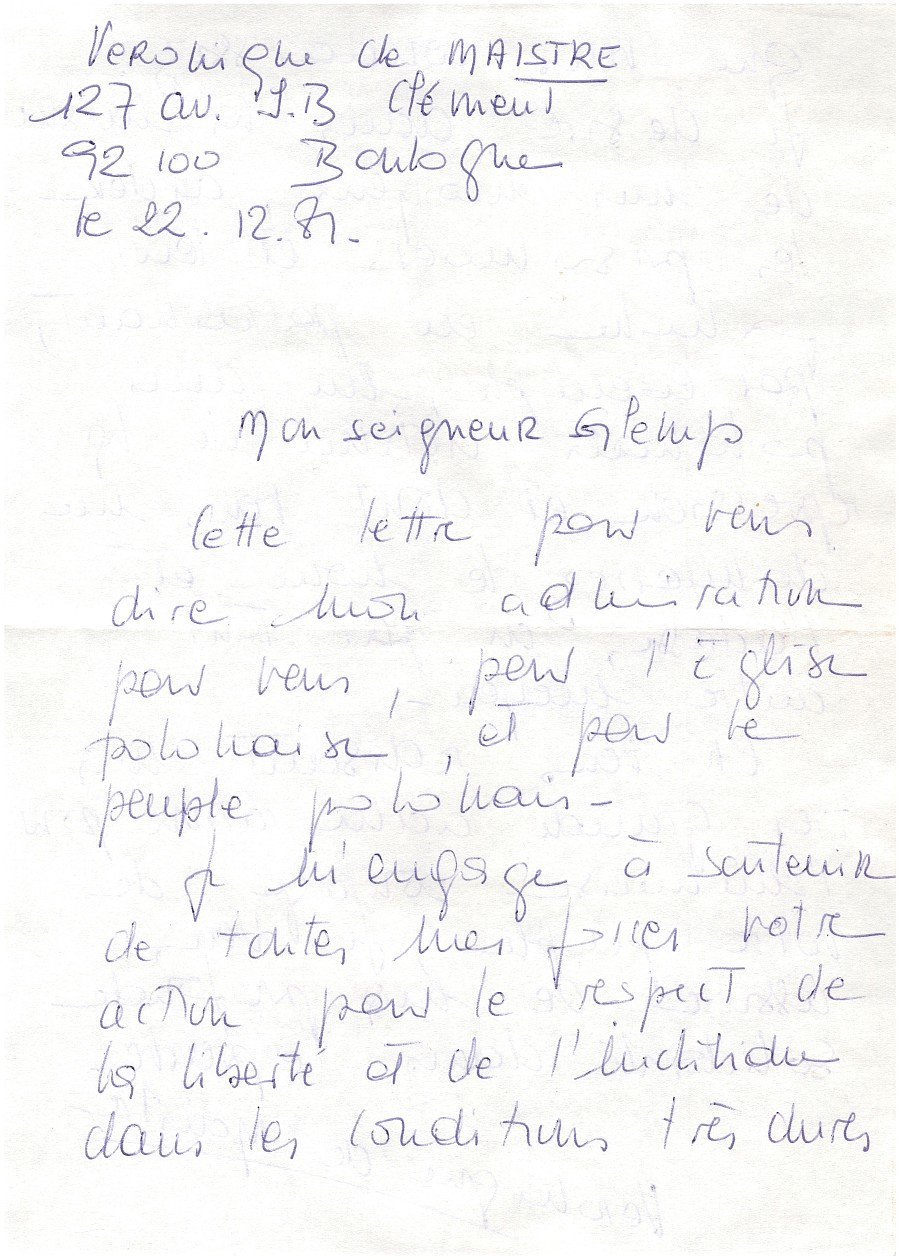 Veronique de MAISTRE
127 av. J.B Clément
92 100 Boulogne
le 22. 12. 81.
Monseigneur Glemp
Cette lettre pour vous
dire mon admiration
pour vous, pour l'Eglise
polonaise, et pour le
peuple polonais-
Je m'engage à soutenir
de toutes mes forces votre
action pour le respect de
la liberté et de l'individu
dans les conditions très dures